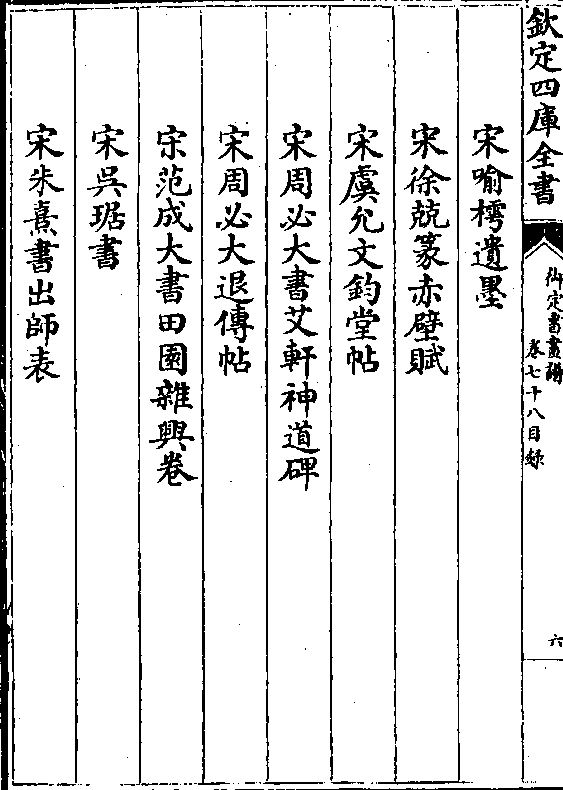 欽定四庫全書
御定書畫譜
卷七十八目録
六
宋喻樗遺墨
宋徐兢篆赤壁賦
宋虞允文鈞堂帖
宋周必大書艾軒神道碑
宋周必大退傅帖
宋范成大書田園雜興卷
宋吳琚書
宋朱熹書出師表